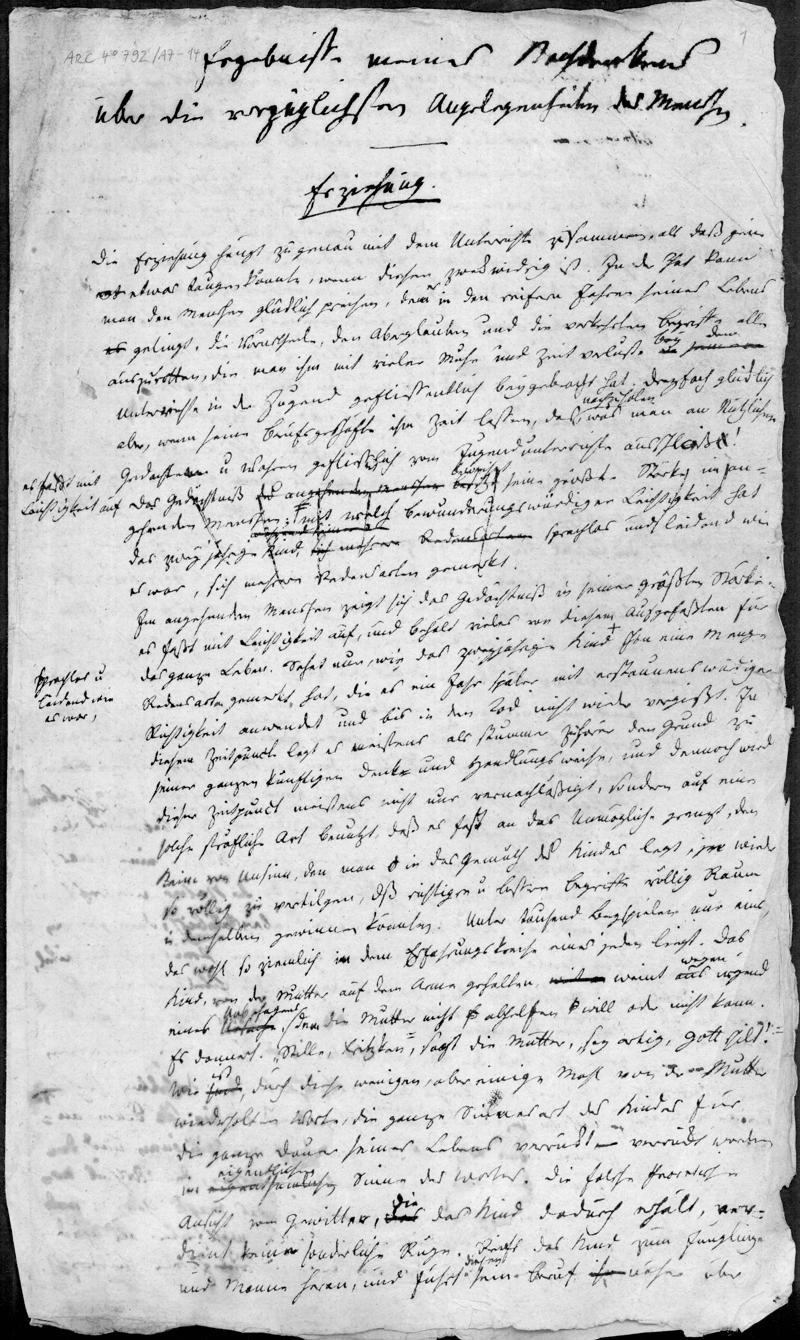 ARC 4° 792/A7-14
1
Ergebnisse meines Nachdenkens
über die vorzüglichsten Angelegenheiten des Menschen.
Erziehung.
Die Erziehung hängt zu genau mit dem Unterrichte zusammen, als daß jene
etwas taugen könnte, wenn dieser zweckwidrig ist. In der That kann
man den Menschen glücklich preisen, dem in den reifern Jahren seines Lebens
es gelingt, die Vorurtheile, den Aberglauben und die verkehrten Begriffe alle
auszurotten, die man ihm mit vieler Mühe und Zeitverlust bey dem
Unterrichte in der Jugend geflissentlich beygebracht hat. Dreyfach glücklich
aber, wenn seine Berufsgeschäfte ihm Zeit lassen, das nachzuholen, was man an Nützlichem
Gedachten u Wahren geflissentlich vom Jugendunterrichte ausschließt!
es faßt mit
Leichtigkeit auf
Das Gedächtniß seine größte Stärke im an-
gehenden Menschen; mit welch bewunderungswürdiger Leichtigkeit hat
das zweyjährige Kind, sprachlos und leidend wie
es war, sich mehrere Redensarten gemerkt.
Im angehenden Menschen zeigt sich das Gedächtniß in seiner größten Stärke.
es faßt mit Leichtigkeit auf, und behält vieles von diesem Aufgefaßten für
das ganze Leben. Sehet nur, wie das zweyjährige Kind schon eine Menge
sprachlos u
leidend wie
es war,
Redensarten gemerkt hat, die es ein Jahr später mit erstaunenswürdiger
Richtigkeit anwendet und bis in den Tod nicht wieder vergißt. In
diesem Zeitpunct legt es meistens als stummer Zuhörer den Grund zu
seiner ganzen künftigen Denk- und Handlungsweise, und dennoch wird
dieser Zeitpunct meistens nicht nur vernachläßigt, sondern auf eine
solche sträfliche Art benutzt, daß es fast an das Unmögliche grenzt, den
Keim von Unsinn, den man in das Gemüth des Kindes legt, je wieder
so völlig zu vertilgen, daß richtigere u bessere Begriffe völlig Raum
in demselben gewinnen könnten. Unter tausend Beyspielen nur eins,
das wohl so ziemlich in dem Erfahrungskreise eines jeden liegt. Das
Kind, von der Mutter auf dem Arme gehalten, weint wegen irgend
eines Unbehagens, dem die Mutter nicht abhelfen will oder nicht kann.
Es donnert. "Stille, Fritzken", sagt die Mutter, "sey artig, Gott schilt!"
Wie ist durch diese wenigen, aber einige Mahl von der Mutter
wiederholten Worte, die ganze Sinnesart des Kindes für
die ganze Dauer seines Lebens verrückt verrückt worden
im eigentlichen Sinne des Wortes. Die falsche theoretische
Ansicht vom Gewitter, die das Kind dadurch erhält, ver-
dient keine sonderliche Rüge. Reift das Kind zum Jünglinge
und Manne heran, und führt diesen sein Beruf näher über